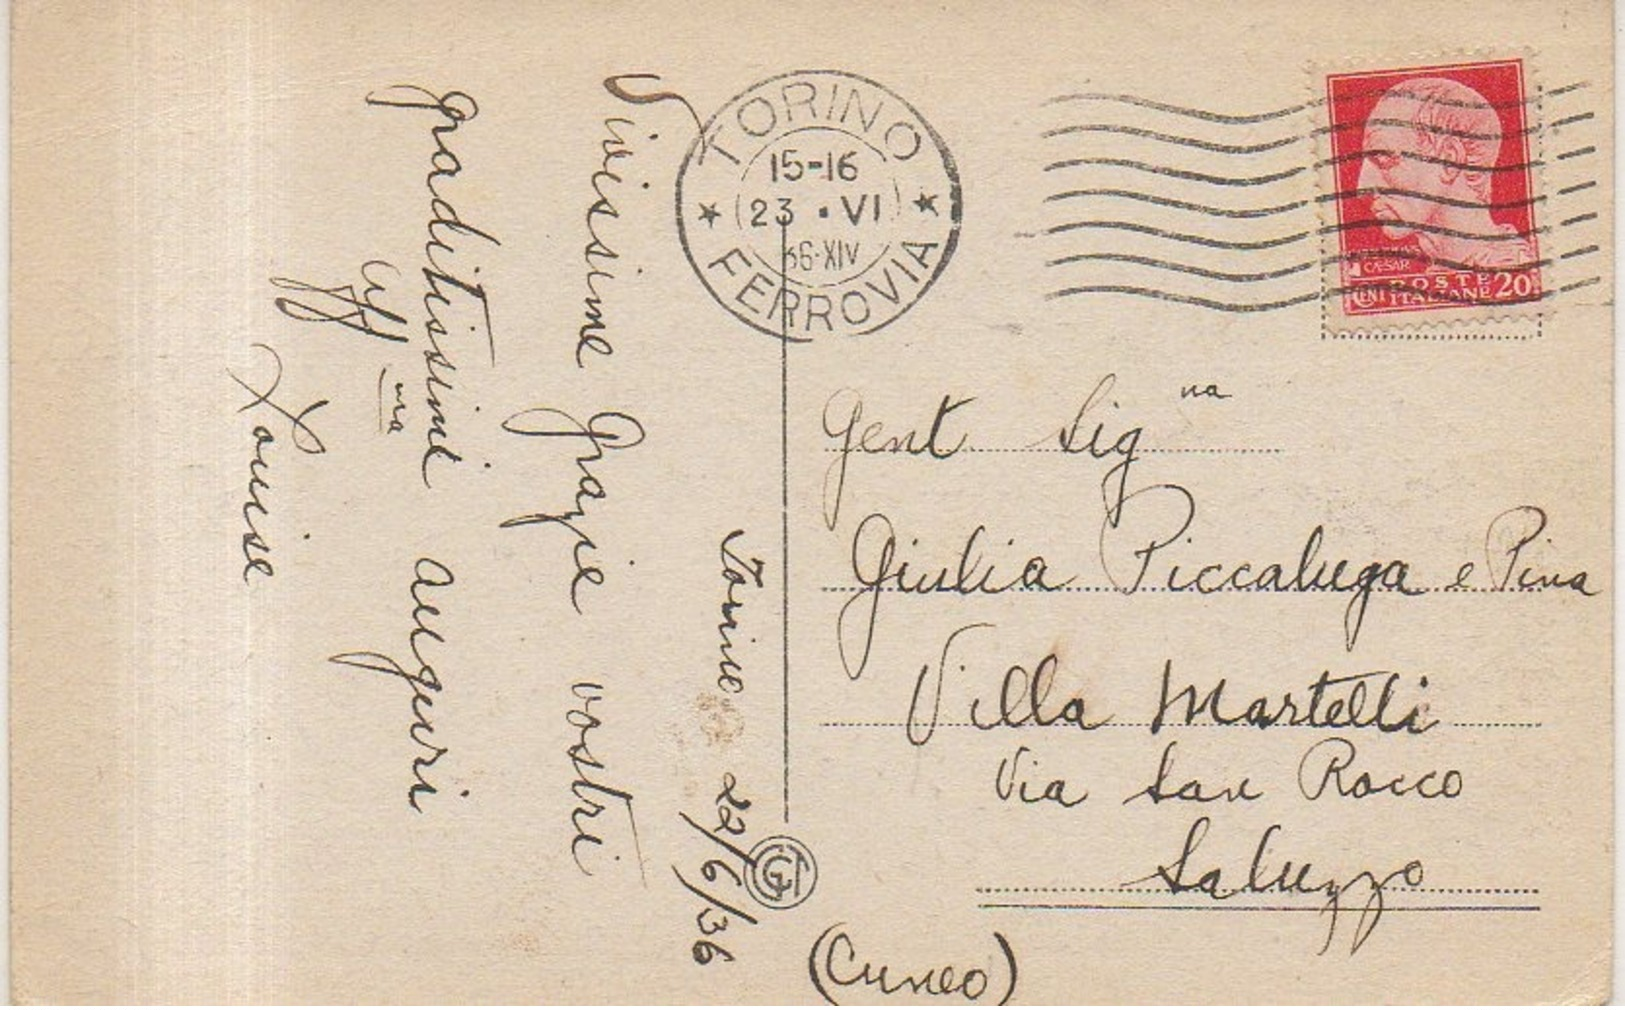 Torino 22/6/36
Vivissime grazie vostri
graditissimi auguri
Aff ma
Louise
TORINO
15-16
23 • VI
36-XIV
FERROVIA
CÆSAR
POSTE
CENT ITALIANE 20
Gent Sig na
Giulia Piccaluga e Pina
Villa Martelli
Via San Rocco
Saluzzo
(Cuneo)